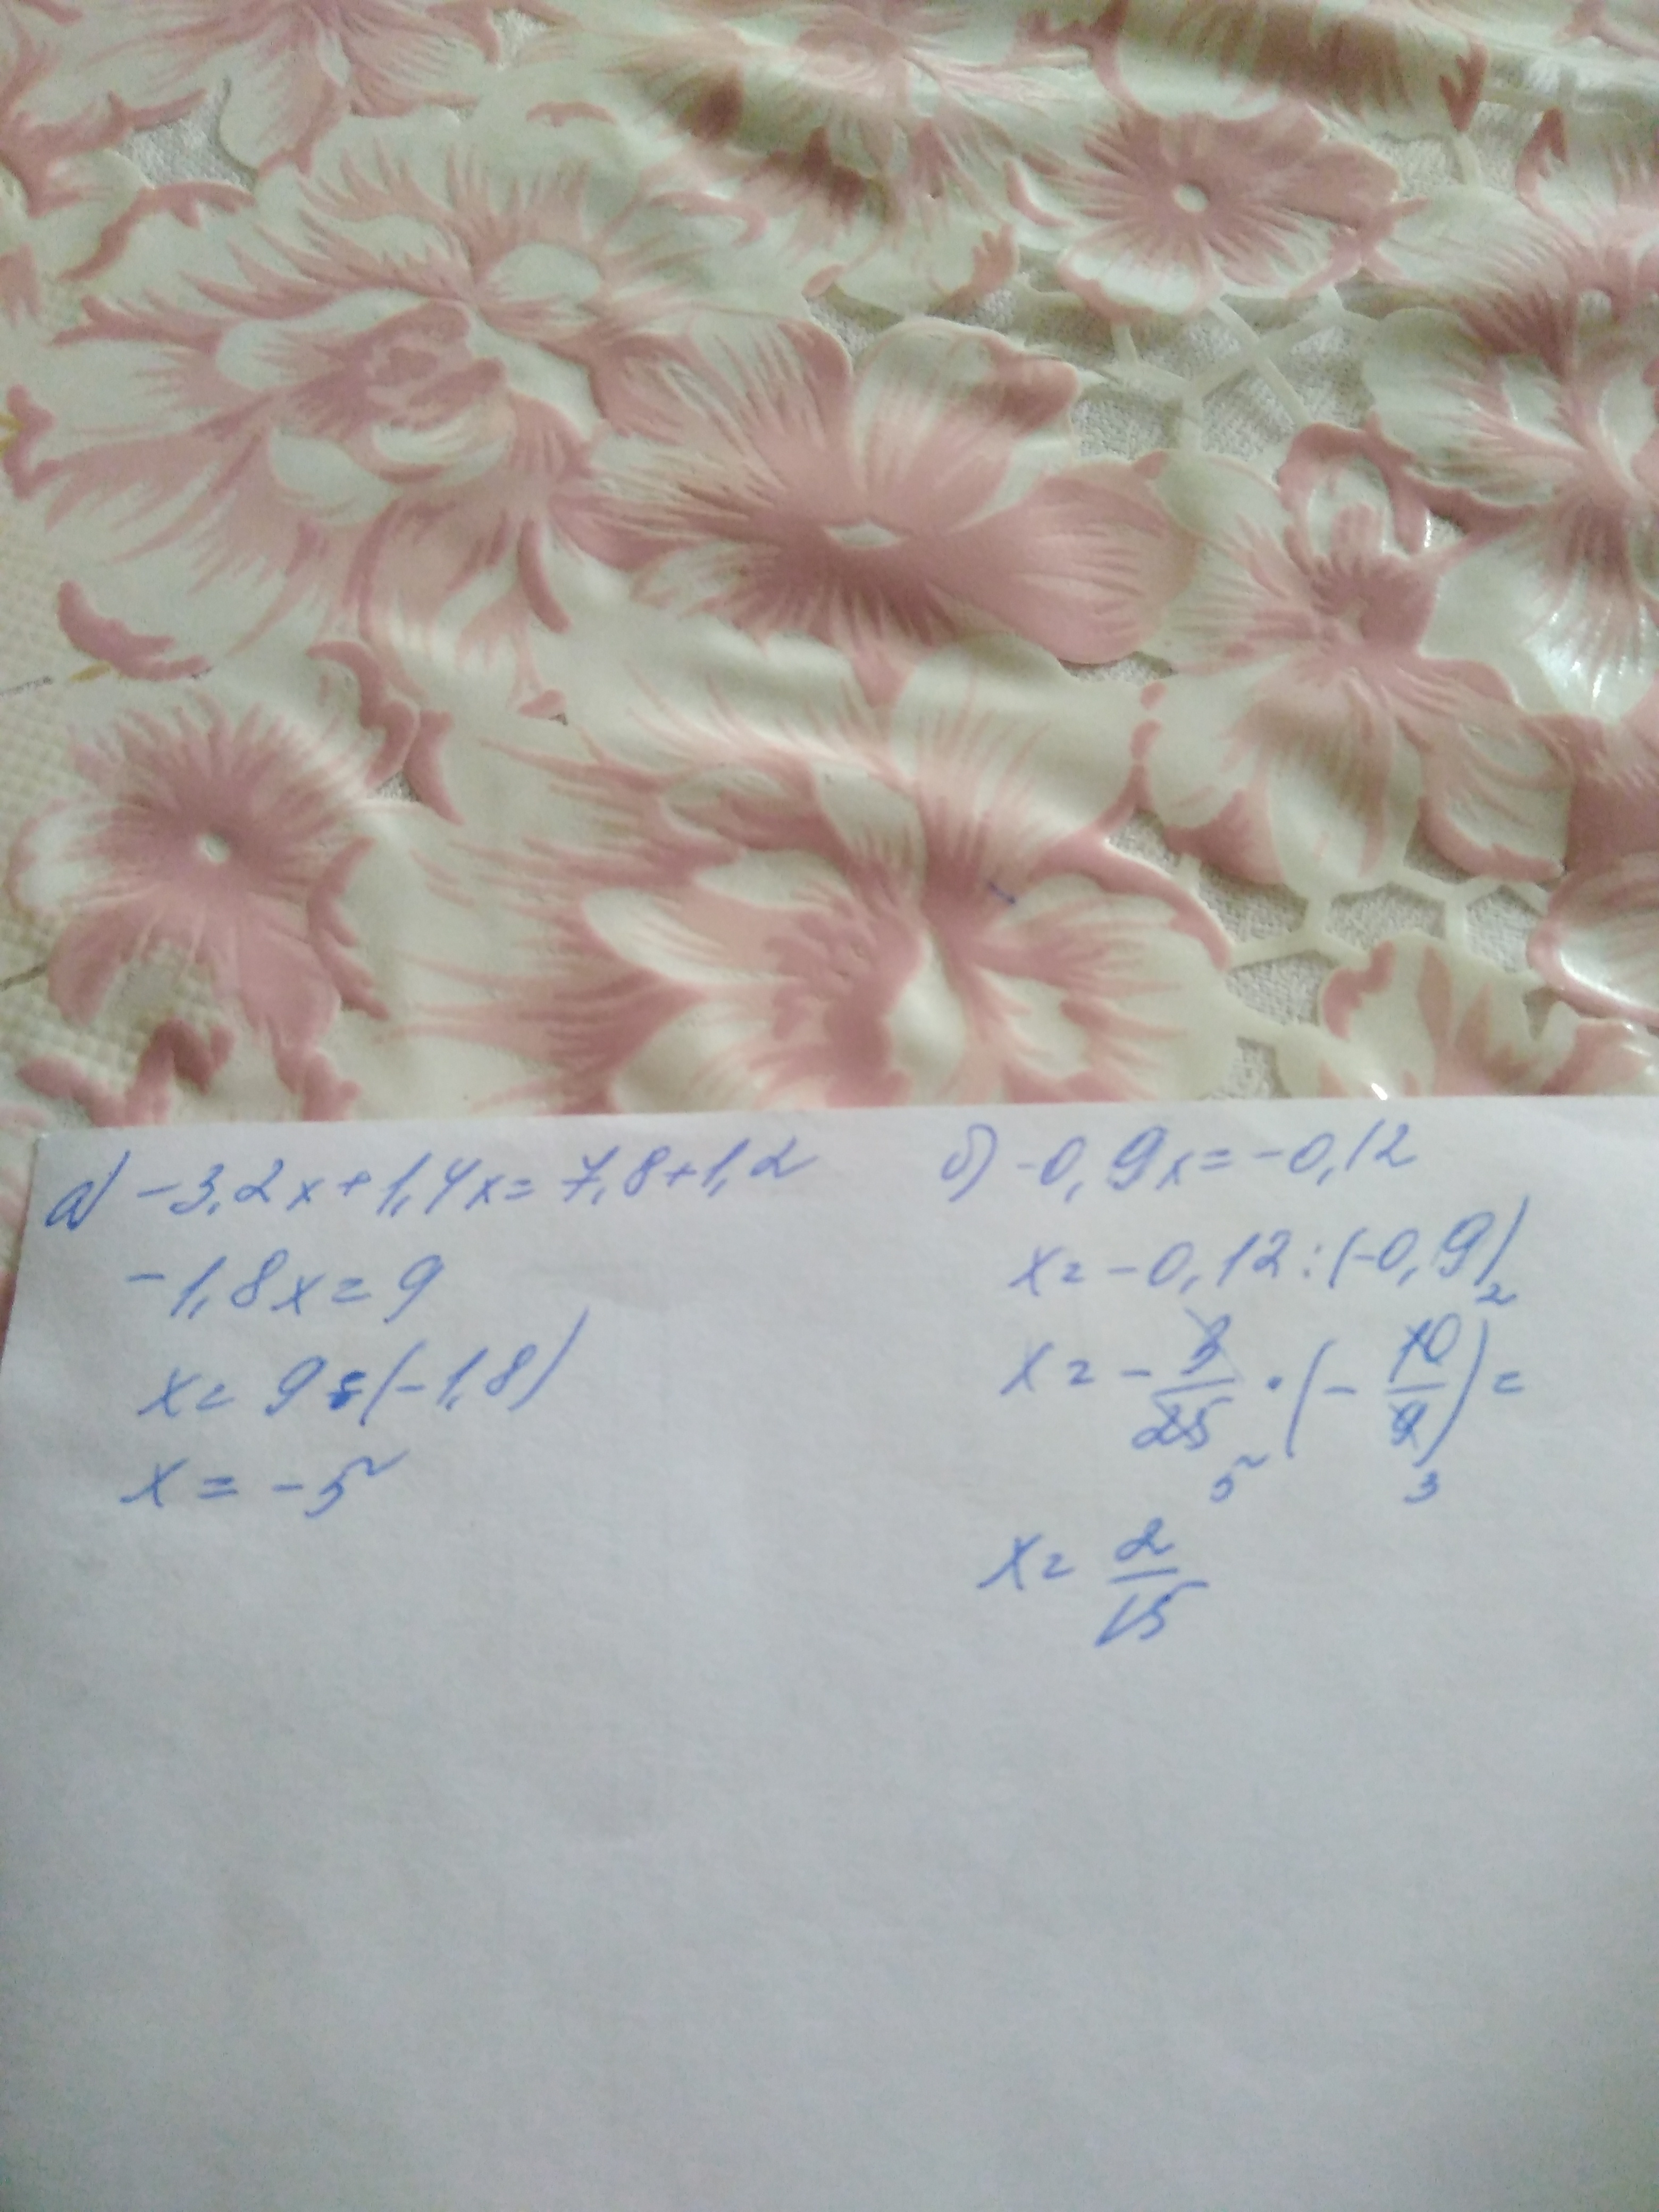 а) -3,2x+1,4x=7,8+1,2
-1,8x=9
x=9:(-1,8)
x=-5
б) -0,9x=-0,12
x=-0,12:(-0,9)
x=-3/25·(-10/9)=
2
5 3
x=2/15